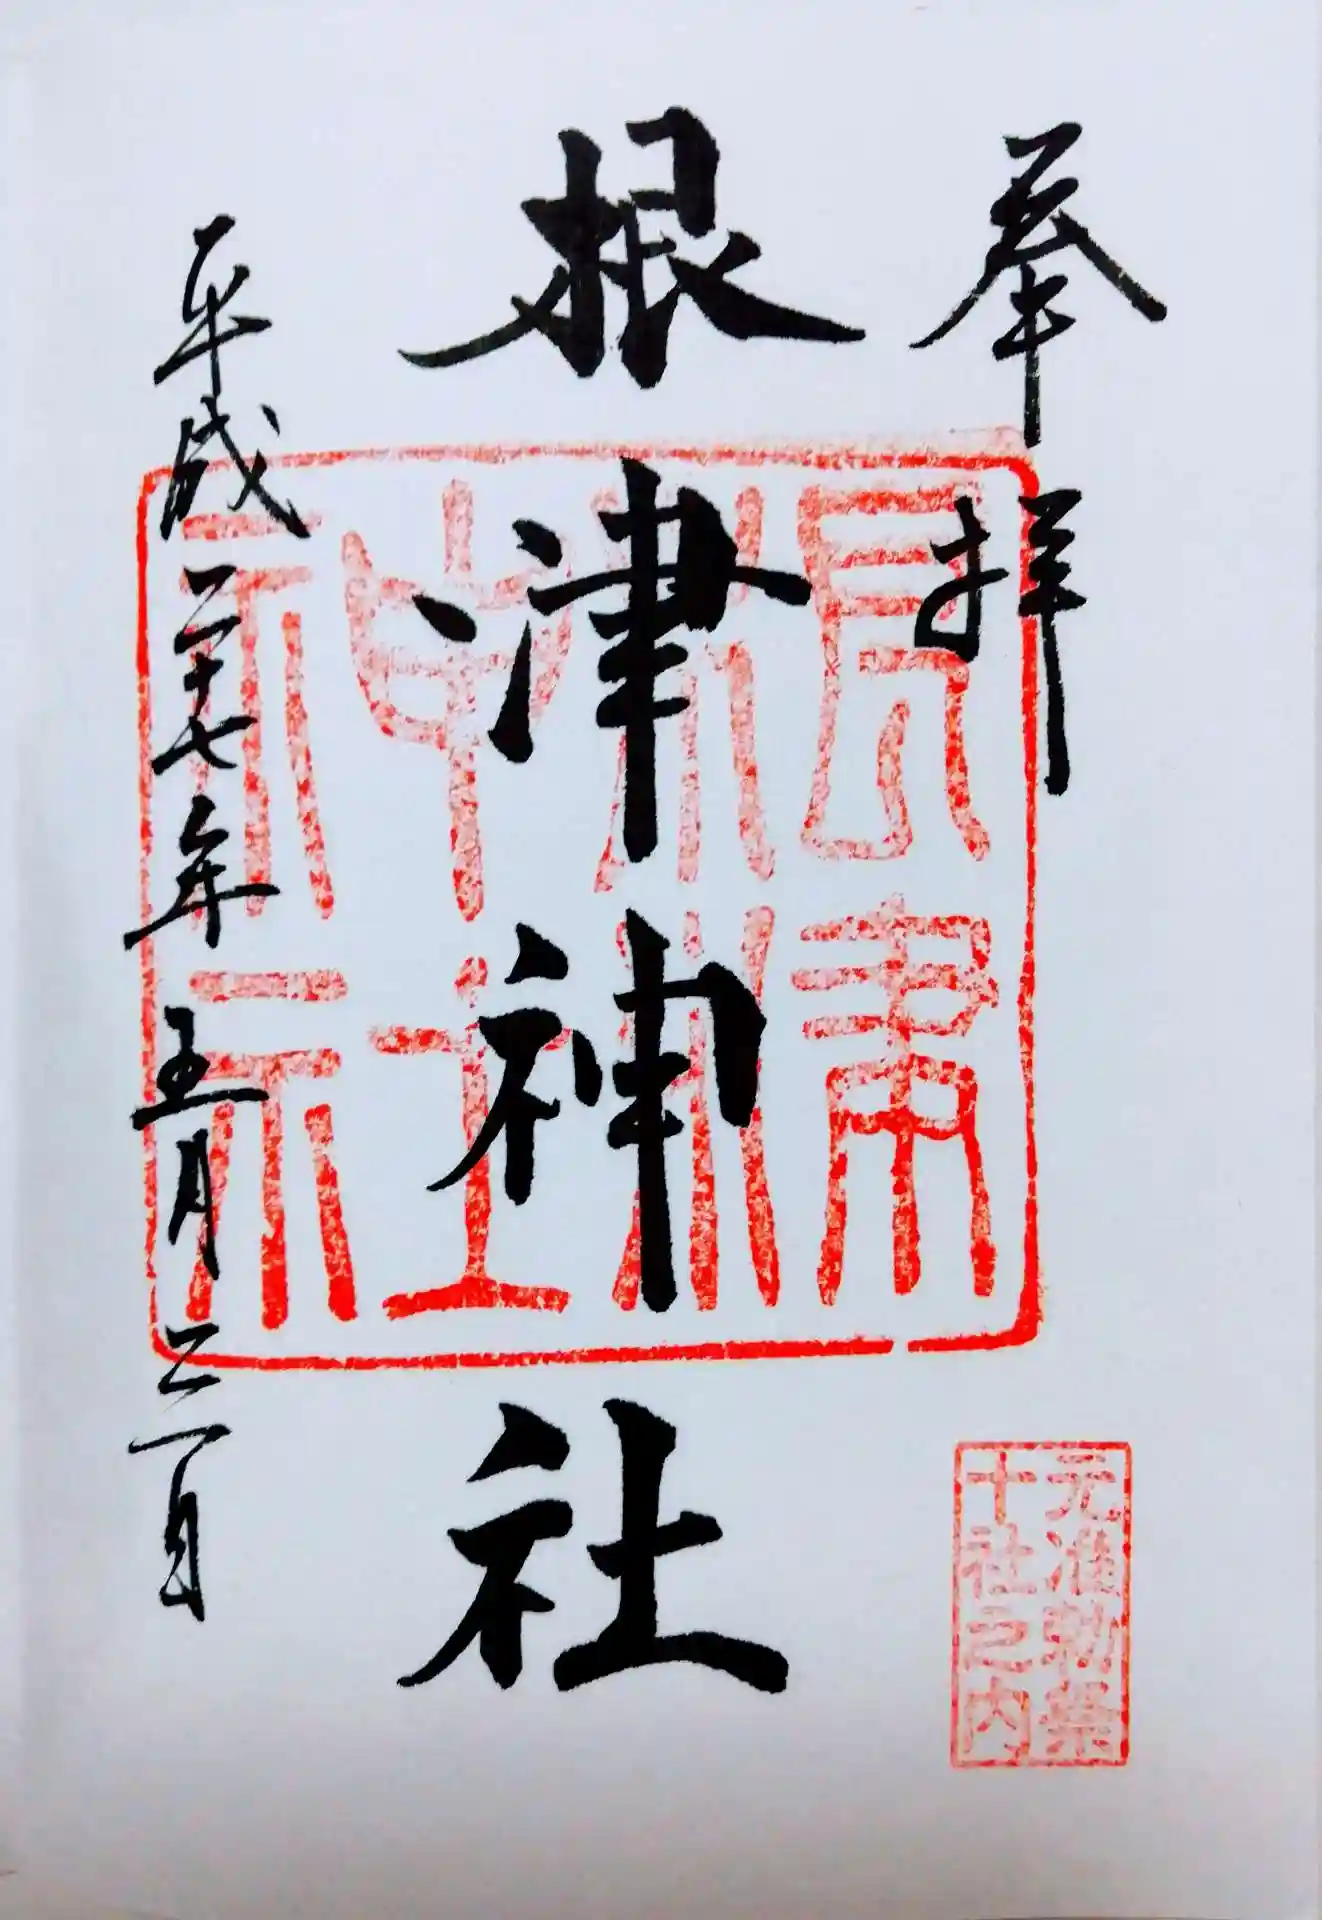 奉拝
根津神社
平成二十七年五月三日
根津
神社
元准勅祭
十社之内